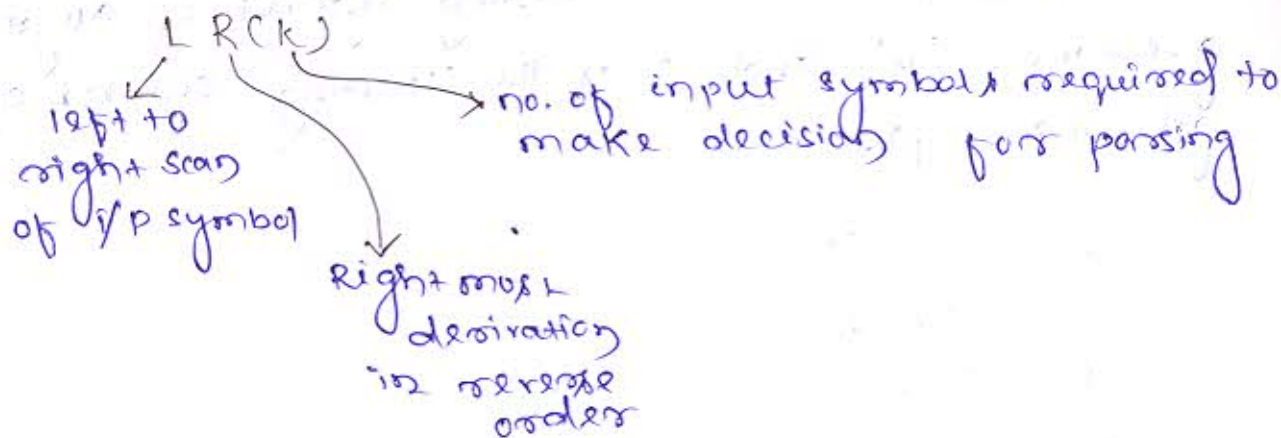 L R(k)
left to
right scan
of i/p symbol
no. of input symbols required to
make decision for parsing
Right most
derivation
in reverse
order